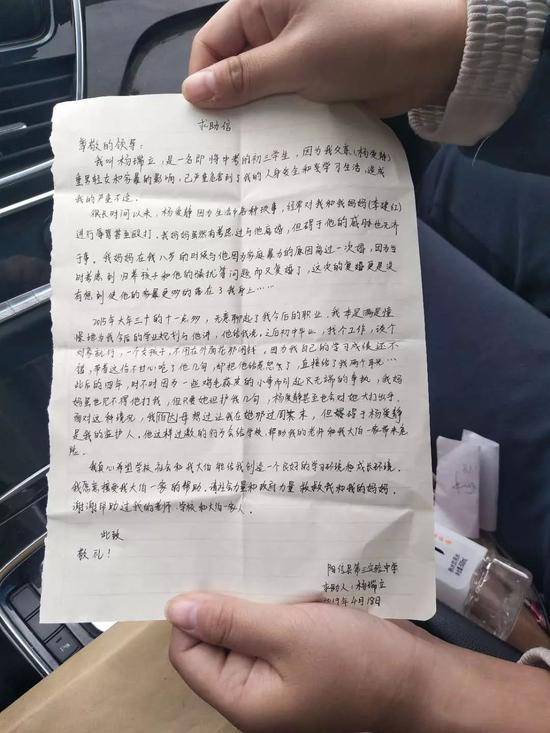 求助信
尊敬的领导：
我叫杨瑞立，是一名即将中考的初三学生，因为我父亲(杨俊静)
重男轻女和家暴的影响，已严重危害到了我的人身安全和我学习生活，造成
我的严重不适。
很长时间以来，杨俊静因为生活中各种琐事，经常对我和我妈妈(李建红)
进行辱骂甚至殴打。我妈妈虽然有考虑过与他离婚，但碍于他的威胁也无济
于事。我妈妈在我八岁的时候与他因为家庭暴力的原因离过一次婚，因为当
时考虑到归养孩子和他的骚扰等问题而又复婚了，这次的复婚更是没
有想到使他的家暴更多的落在了我身上……
2015年大年三十的十一点多，无意聊起了我今后的职业，我本是满是憧
憬地为我今后的学业规划与他讲，他给我说。之后初中毕业，找个工作，谈个
对象就行，一个女孩子，不用在外面花那闲钱，因为我自己的学习成绩还不
错，带着这信不甘心吃了他几句，却把他给惹怒了，直接给了我两个耳光…
此后的四年，时不时因为一些鸡毛蒜皮的小事而引起大无端的争执，我妈
妈虽也见不得他打我，但只要她但护我几句，杨俊静甚至也会对她大打出手。
面对这种情况，我伯达母想过让我在她那过周末，但碍于杨俊静
是我的监护人，他这种过激的行为会给学校，帮助我的老师和我大伯一家带来危
险。
我真心希望学校 社会和我大伯能给我创造一个良好的学习环境和成长环境。
我愿意接受我大伯一家的帮助。请社会力量和政府力量 救救我和我的妈妈。
谢谢帮助过我的老师、学校和大伯一家人。
此致
敬礼！
阳信县第三实验中学
求助人：杨瑞立
2019年4月18日